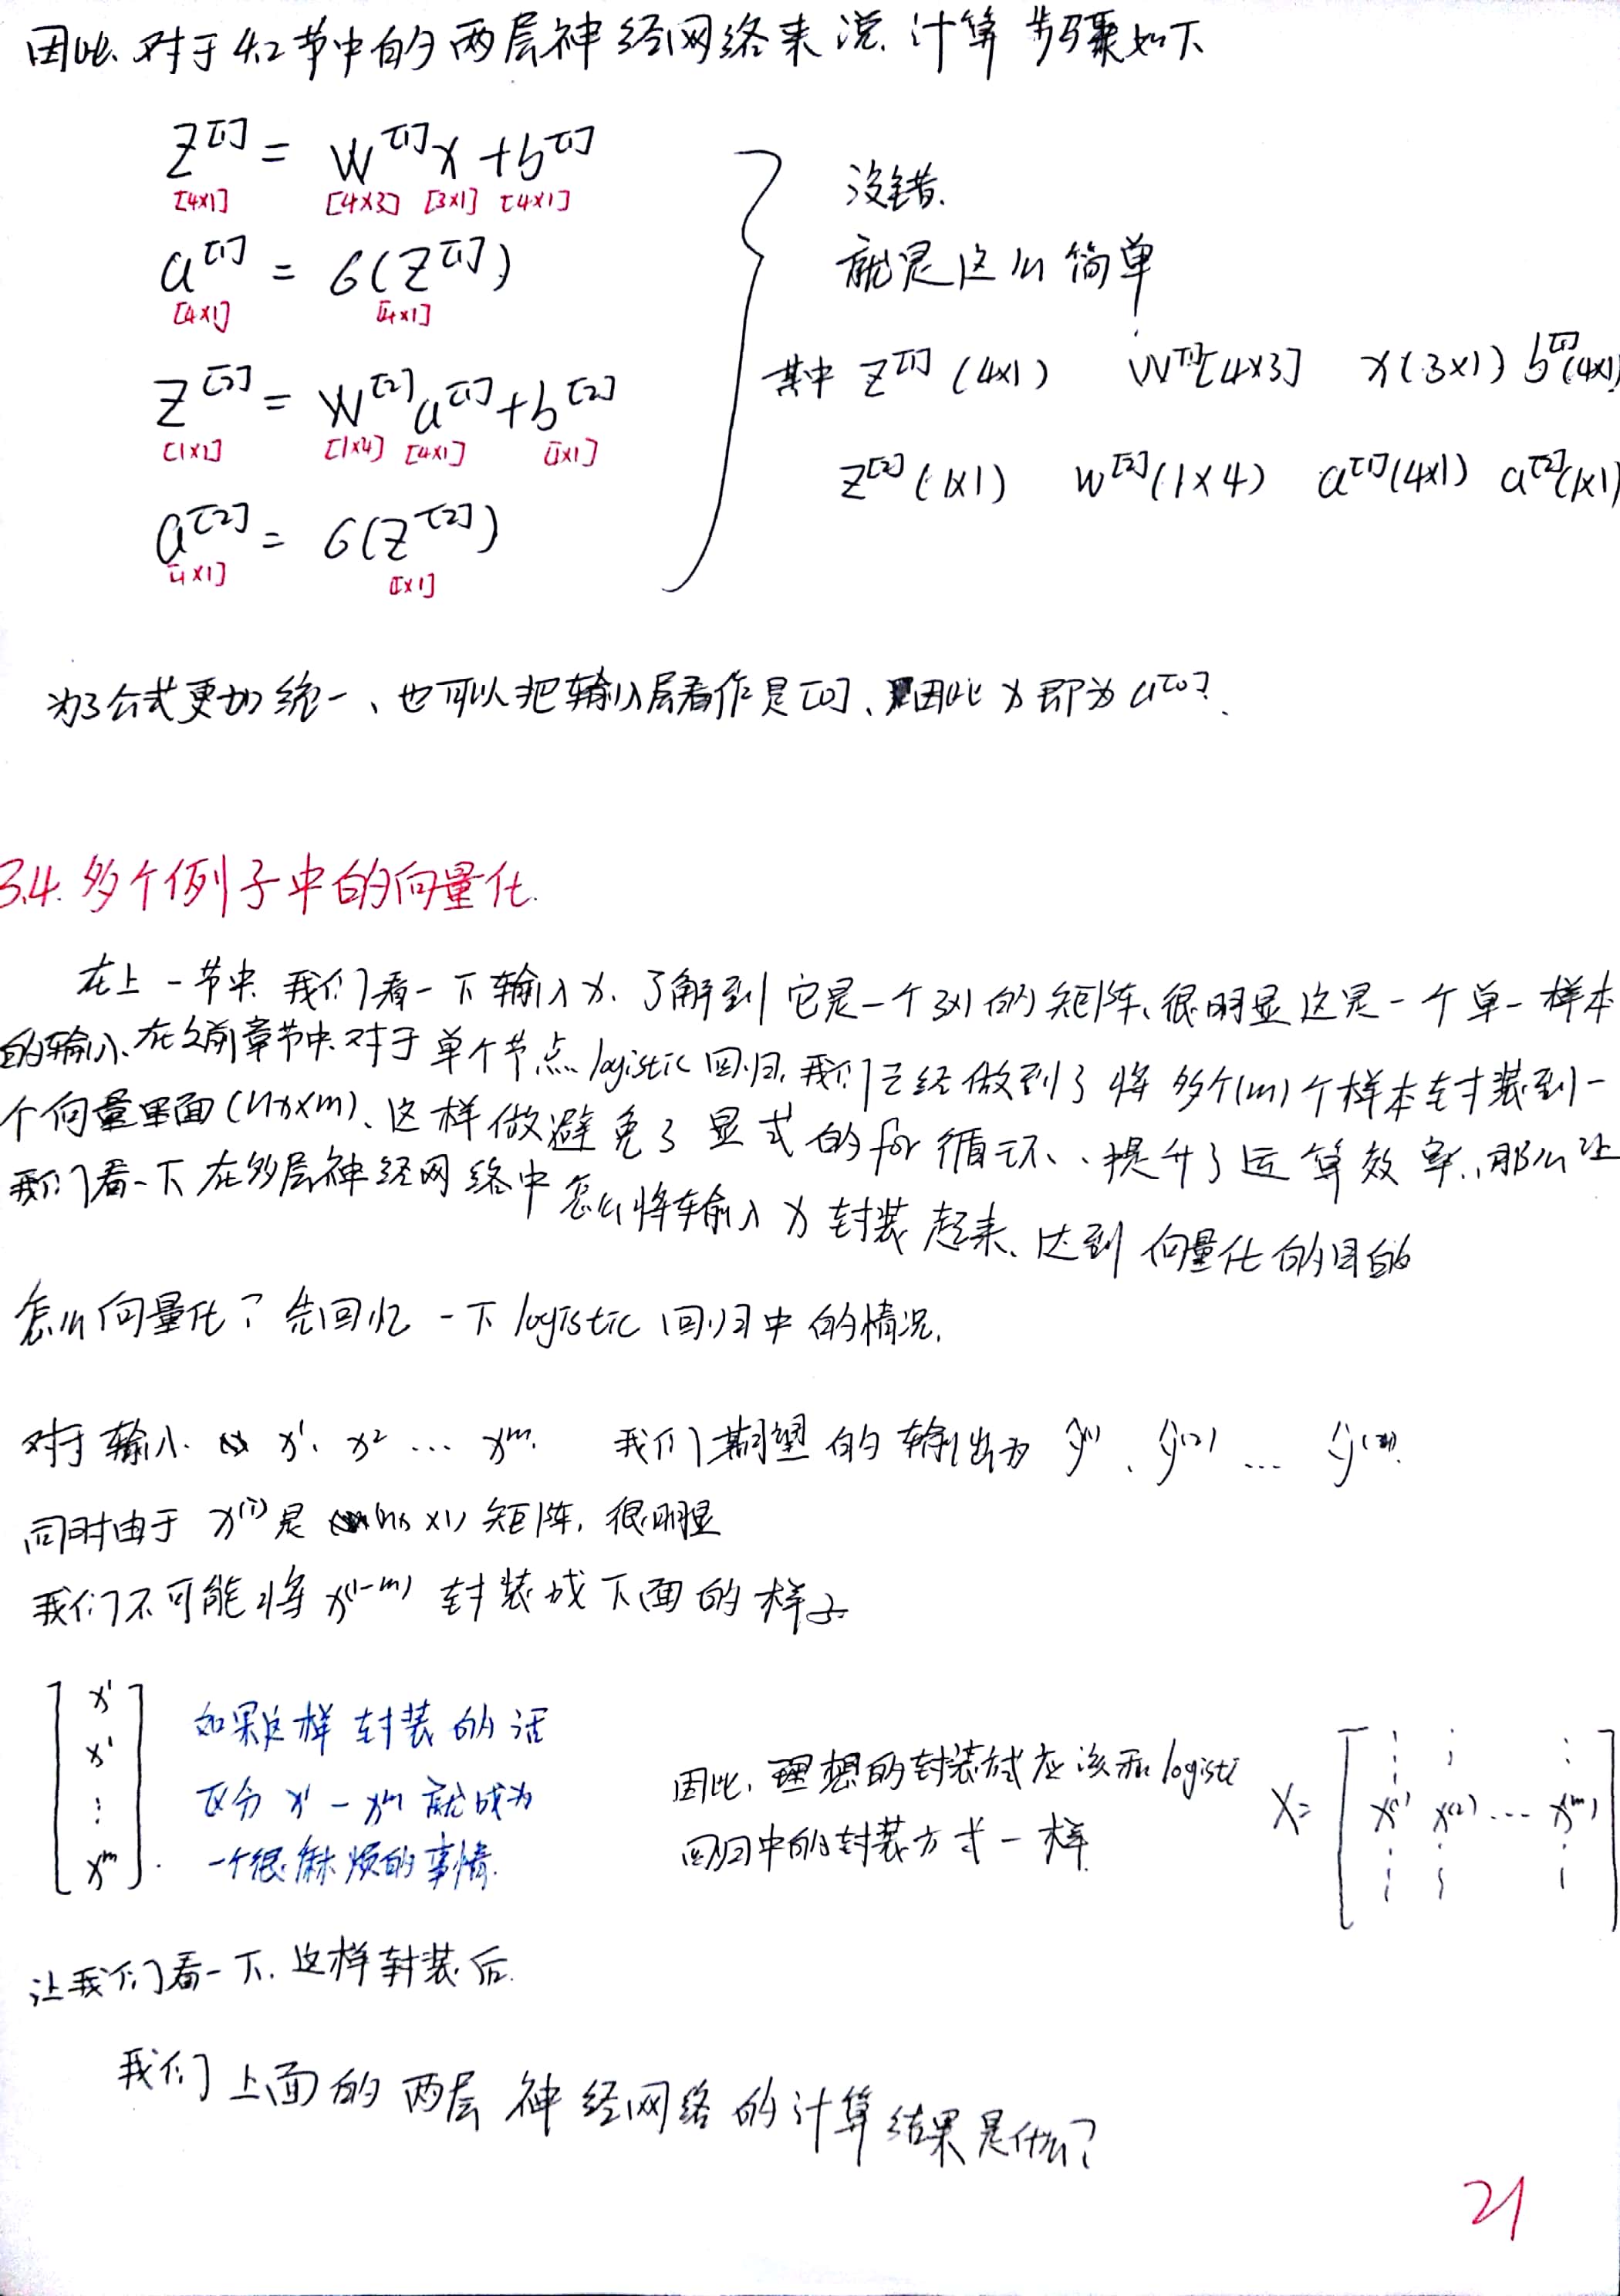 因此、对于4.2节中的两层神经网络来说、计算步骤如下
z^[1] = W^[1]x + b^[1]
[4x1] [4x3] [3x1] [4x1]
a^[1] = σ(z^[1])
[4x1] [4x1]
z^[2] = W^[2]a^[1] + b^[2]
[1x1] [1x4] [4x1] [1x1]
a^[2] = σ(z^[2])
[1x1] [1x1]
没错、
就是这么简单
其中 z^[1](4x1) W^[1][4x3] x(3x1) b^[1](4x1)
z^[2](1x1) W^[2](1x4) a^[1](4x1) a^[2](1x1)
为了公式更加统一、也可以把输入层看作是[0]、因此x即为a^[0]、
3.4. 多个例子中的向量化.
在上一节中、我们看一下输入x、了解到它是一个3x1的矩阵、很明显这是一个单一样本
的输入、在之前章节中、对于单个节点logistic回归、我们已经做到了将多个(m)个样本封装到一
个向量里面(nxxm)、这样做避免了显式的for循环、提升了运算效率、那么让
我们看一下在多层神经网络中怎么将输入x封装起来、达到向量化的目的
怎么向量化？先回忆一下logistic回归中的情况、
对于输入 x^1、x^2 ... x^m、 我们期望的输出为 ŷ^(1)、ŷ^(2) ... ŷ^(m)、
同时由于x^(i)是(nx x1)矩阵、很明显
我们不可能将x^(1-m)封装成下面的样子
[x^1
x^1
⋮
x^m].
如果这样封装的话
区分x^1-x^m就成为
一个很麻烦的事情.
因此、理想的封装方式应该和logisti
回归中的封装方式一样.
X= [x^(1) x^(2) ... x^(m)]
让我们看一下、这样封装后
我们上面的两层神经网络的计算结果是什么？
21